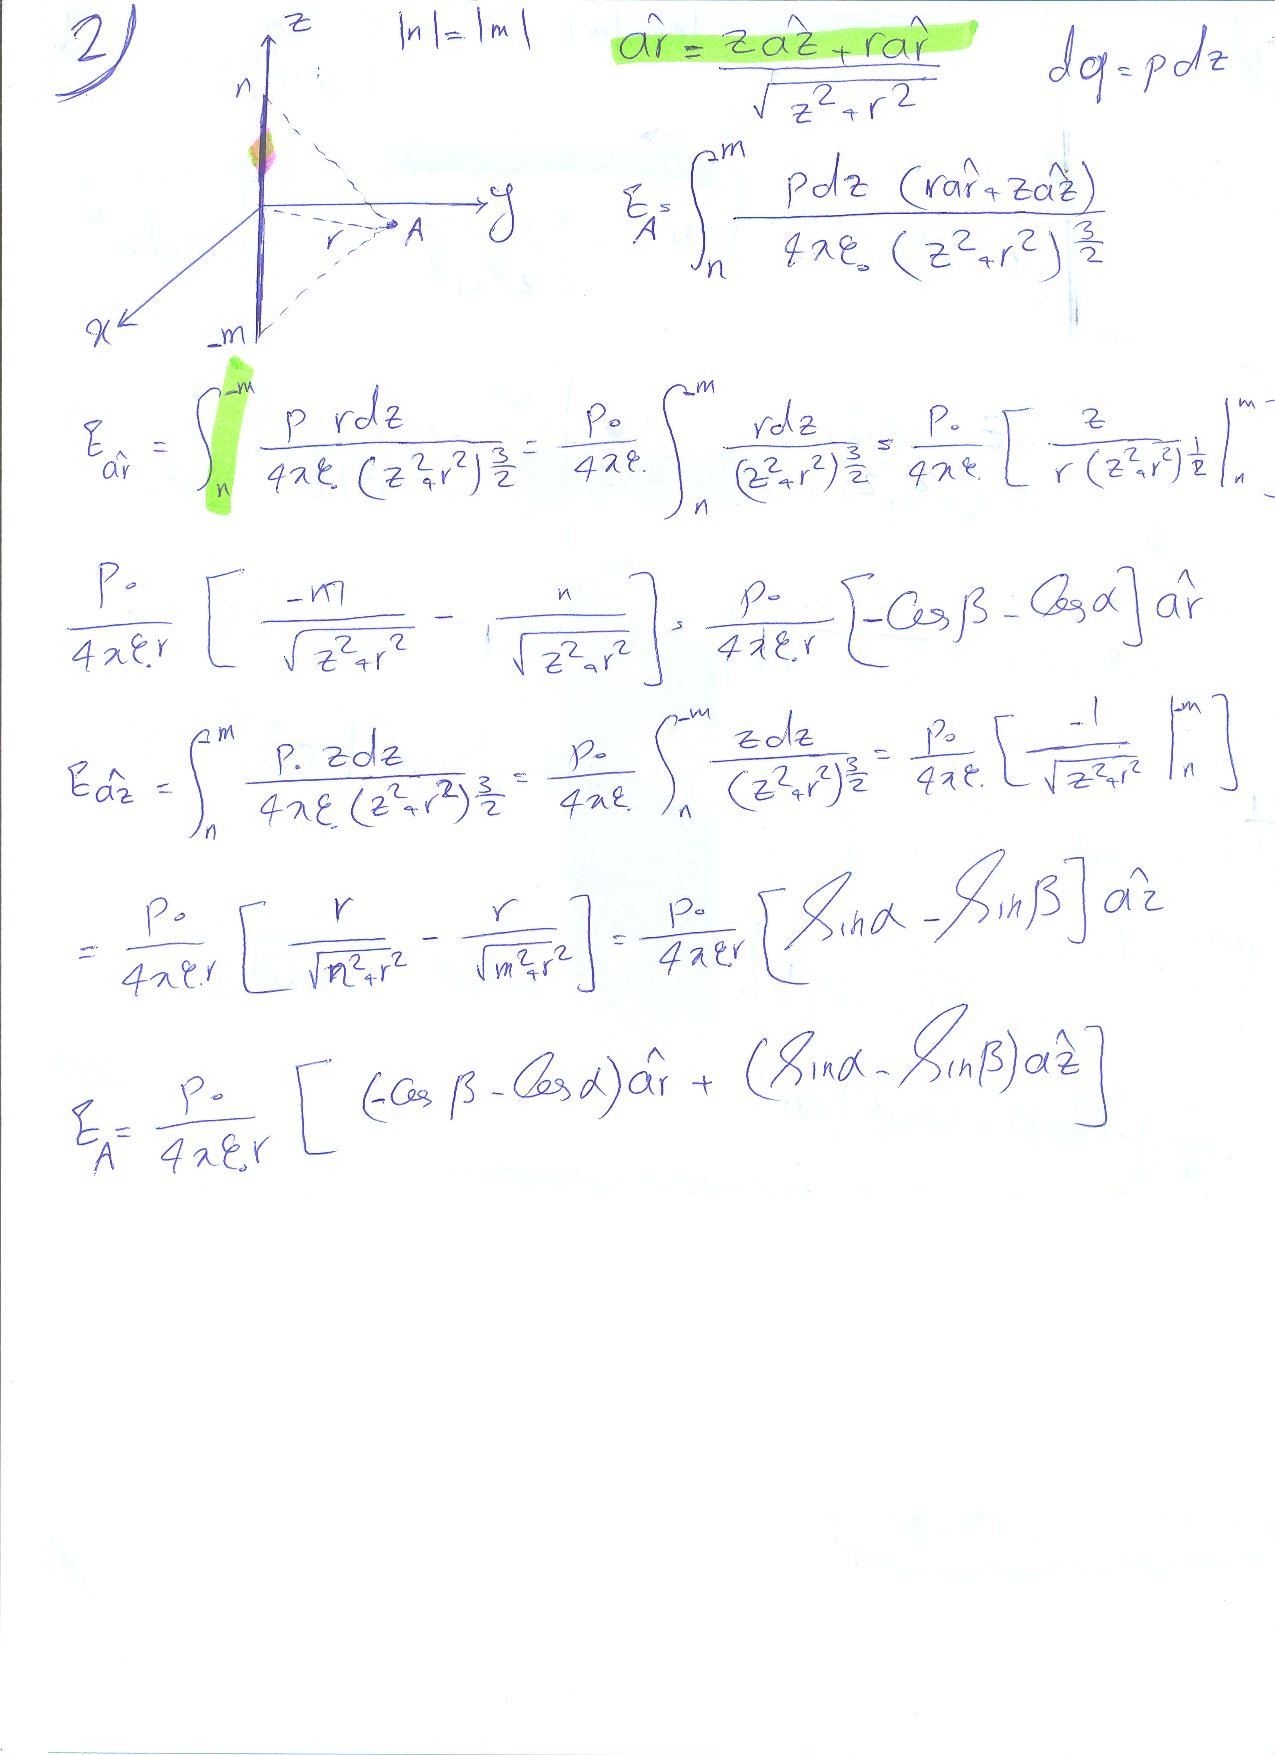 2)
z
|n| = |m|
ar̂ = (zaẑ + rar̂) / √(z² + r²)
dq = ρdz
n
E_A = ∫_n^{-m} ρdz (rar̂ + zaẑ) / 4πε₀ (z² + r²)^{3/2}
y
r
A
x
-m
E_ar̂ = ∫_n^{-m} ρ rdz / 4πε₀ (z² + r²)^{3/2} = ρ₀ / 4πε₀ ∫_n^{-m} rdz / (z² + r²)^{3/2} = ρ₀ / 4πε₀ [ z / r (z² + r²)^{1/2} |_n^{m-} ]
ρ₀ / 4πε₀r [ -m / √(z² + r²) - n / √(z² + r²) ] = ρ₀ / 4πε₀r [-Cos β - Cos α] ar̂
E aẑ = ∫_n^{-m} ρ₀ zdz / 4πε₀ (z² + r²)^{3/2} = ρ₀ / 4πε₀ ∫_n^{-m} zdz / (z² + r²)^{3/2} = ρ₀ / 4πε₀ [ -1 / √(z² + r²) |_n^{-m} ]
= ρ₀ / 4πε₀r [ r / √(n² + r²) - r / √(m² + r²) ] = ρ₀ / 4πε₀r [Sin α - Sin β] aẑ
E_A = ρ₀ / 4πε₀r [ (-Cos β - Cos α) ar̂ + (Sin α - Sin β) aẑ ]